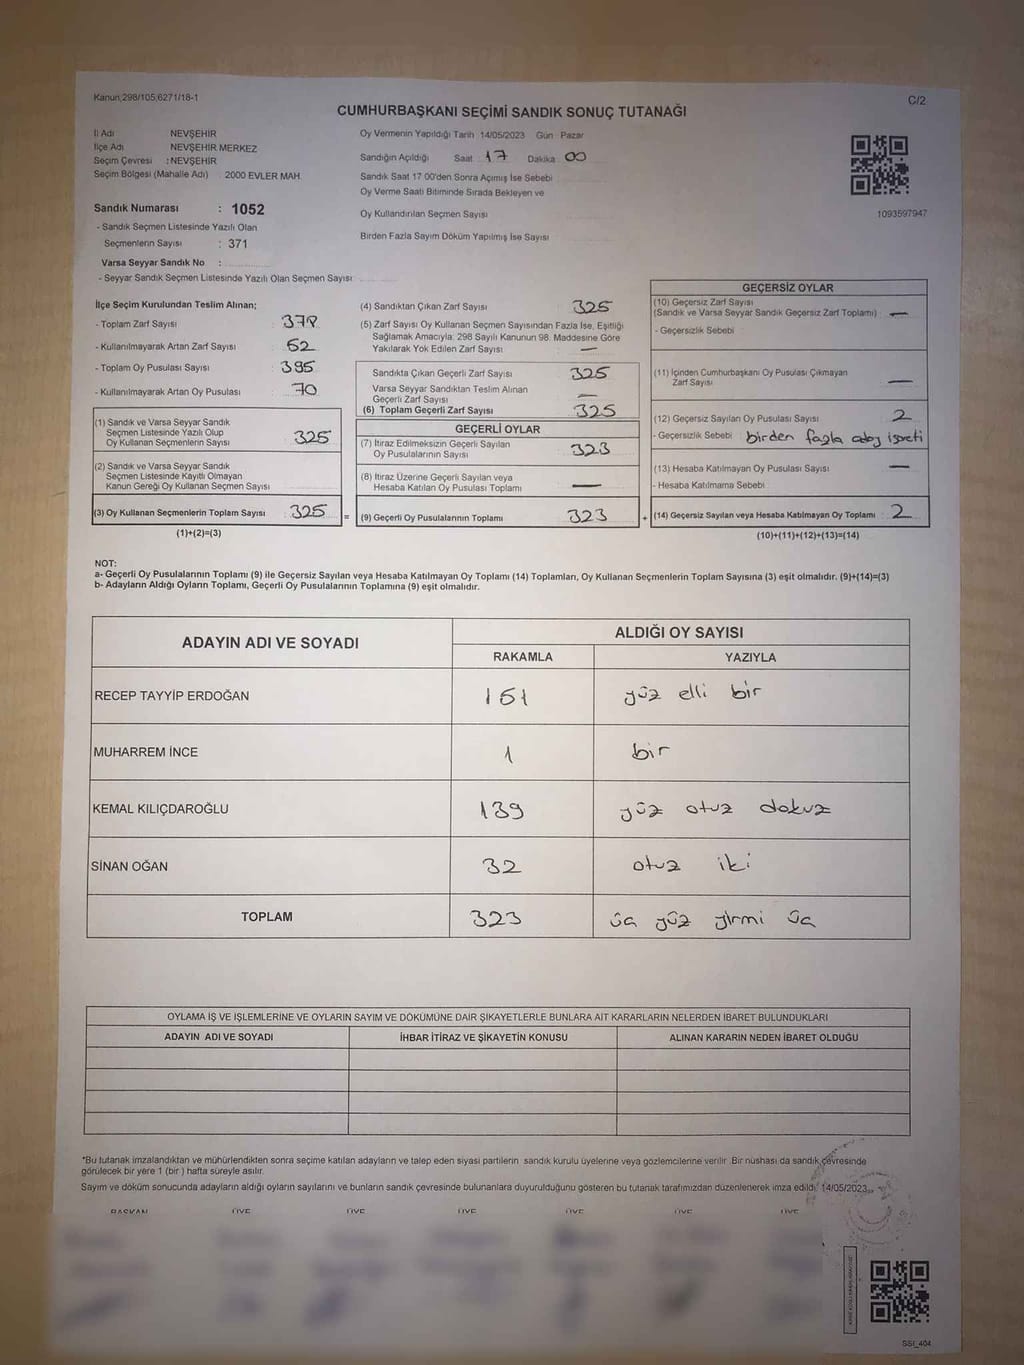 Kanun;298/105,6271/18-1
C/2
CUMHURBAŞKANI SEÇİMİ SANDIK SONUÇ TUTANAĞI
İl Adı NEVŞEHİR
İlçe Adı NEVŞEHİR MERKEZ
Seçim Çevresi : NEVŞEHİR
Seçim Bölgesi (Mahalle Adı) 2000 EVLER MAH.
Sandık Numarası : 1052
- Sandık Seçmen Listesinde Yazılı Olan
Seçmenlerin Sayısı : 371
Varsa Seyyar Sandık No :
- Seyyar Sandık Seçmen Listesinde Yazılı Olan Seçmen Sayısı
Oy Vermenin Yapıldığı Tarih 14/05/2023 Gün Pazar
Sandığın Açıldığı Saat 17 Dakika 00
Sandık Saat 17 00'den Sonra Açımış İse Sebebi
Oy Verme Saati Bitiminde Sırada Bekleyen ve
Oy Kullandırılan Seçmen Sayısı
Birden Fazla Sayım Döküm Yapılmış İse Sayısı
1093597947
İlçe Seçim Kurulundan Teslim Alınan;
- Toplam Zarf Sayısı
- Kullanılmayarak Artan Zarf Sayısı 52
- Toplam Oy Pusulası Sayısı 395
- Kullanılmayarak Artan Oy Pusulası 70
(1) Sandık ve Varsa Seyyar Sandık
Seçmen Listesinde Yazılı Olup
Oy Kullanan Seçmenlerin Sayısı 325
(2) Sandık ve Varsa Seyyar Sandık
Seçmen Listesinde Kayıtlı Olmayan
Kanun Gereği Oy Kullanan Seçmen Sayısı
(3) Oy Kullanan Seçmenlerin Toplam Sayısı 325
(1)+(2)=(3)
=
(4) Sandıktan Çıkan Zarf Sayısı 325
(5) Zarf Sayısı Oy Kullanan Seçmen Sayısından Fazla İse, Eşitliği
Sağlamak Amacıyla; 298 Sayılı Kanunun 98. Maddesine Göre
Yakılarak Yok Edilen Zarf Sayısı —
Sandıkta Çıkan Geçerli Zarf Sayısı 325
Varsa Seyyar Sandıktan Teslim Alınan
Geçerli Zarf Sayısı —
(6) Toplam Geçerli Zarf Sayısı 325
GEÇERLİ OYLAR
(7) İtiraz Edilmeksizin Geçerli Sayılan
Oy Pusulalarının Sayısı 323
(8) İtiraz Üzerine Geçerli Sayılan veya
Hesaba Katılan Oy Pusulası Toplamı —
(9) Geçerli Oy Pusulalarının Toplamı 323
+
GEÇERSİZ OYLAR
(10) Geçersiz Zarf Sayısı
(Sandık ve Varsa Seyyar Sandık Geçersiz Zarf Toplamı) —
- Geçersizlik Sebebi
(11) İçinden Cumhurbaşkanı Oy Pusulası Çıkmayan
Zarf Sayısı —
(12) Geçersiz Sayılan Oy Pusulası Sayısı 2
- Geçersizlik Sebebi birden fazla aday işareti
(13) Hesaba Katılmayan Oy Pusulası Sayısı —
- Hesaba Katılmama Sebebi
(14) Geçersiz Sayılan veya Hesaba Katılmayan Oy Toplamı 2
(10)+(11)+(12)+(13)=(14)
NOT:
a- Geçerli Oy Pusulalarının Toplamı (9) ile Geçersiz Sayılan veya Hesaba Katılmayan Oy Toplamı (14) Toplamları, Oy Kullanan Seçmenlerin Toplam Sayısına (3) eşit olmalıdır. (9)+(14)=(3)
b- Adayların Aldığı Oyların Toplamı, Geçerli Oy Pusulalarının Toplamına (9) eşit olmalıdır.
ADAYIN ADI VE SOYADI ALDIĞI OY SAYISI
RAKAMLA YAZIYLA
RECEP TAYYİP ERDOĞAN 151 yüz elli bir
MUHARREM İNCE 1 bir
KEMAL KILIÇDAROĞLU 139 yüz otuz dokuz
SİNAN OĞAN 32 otuz iki
TOPLAM 323 üç yüz yirmi üç
OYLAMA İŞ VE İŞLEMLERİNE VE OYLARIN SAYIM VE DÖKÜMÜNE DAİR ŞİKAYETLERLE BUNLARA AİT KARARLARIN NELERDEN İBARET BULUNDUKLARI
ADAYIN ADI VE SOYADI İHBAR İTİRAZ VE ŞİKAYETİN KONUSU ALINAN KARARIN NEDEN İBARET OLDUĞU
*Bu tutanak imzalandıktan ve mühürlendikten sonra seçime katılan adayların ve talep eden siyasi partilerin sandık kurulu üyelerine veya gözlemcilerine verilir. Bir nüshası da sandık çevresinde
görülecek bir yere 1 (bir) hafta süreyle asılır.
Sayım ve döküm sonucunda adayların aldığı oyların sayılarını ve bunların sandık çevresinde bulunanlara duyurulduğunu gösteren bu tutanak tarafımızdan düzenlenerek imza edildi. 14/05/2023
BAŞKAN ÜYE ÜYE ÜYE ÜYE ÜYE ÜYE
SSI_404